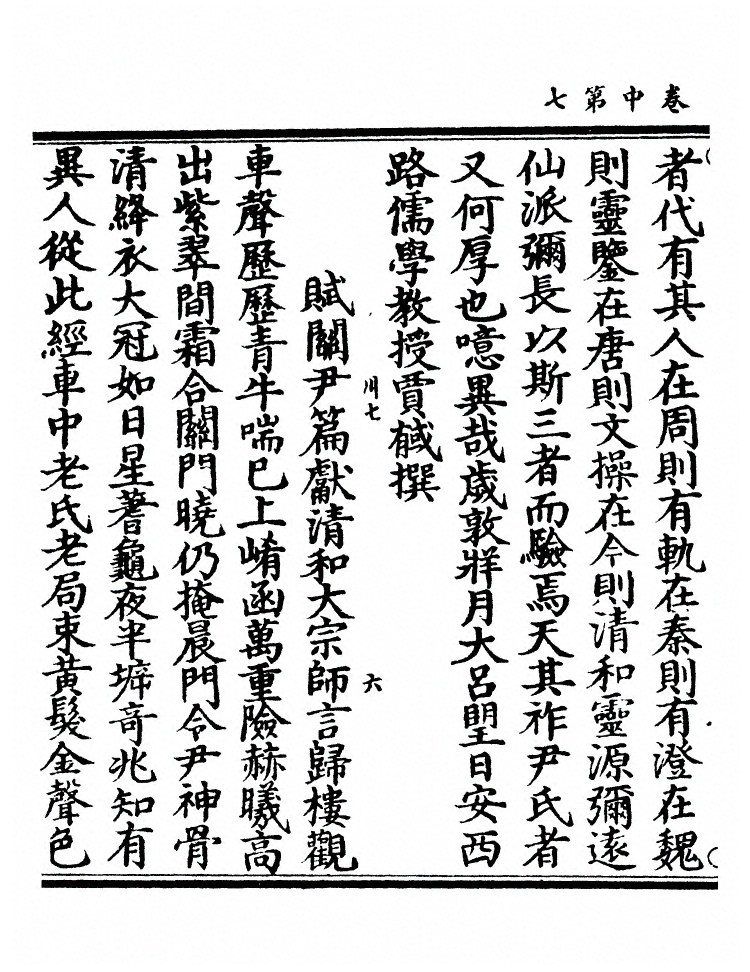 卷中第七
者代有其人在周則有軌在秦則有澄在魏
則靈鑒在唐則文操在今則清和靈源彌遠
仙派彌長以斯三者而驗焉天其祚尹氏者
又何厚也噫異哉歲敦牂月大呂朢日安西
路儒學教授賈䤋撰
川七
六
賦關尹篇獻清和大宗師言歸樓觀
車聲歷歷青牛喘巳上崤函萬重險赫曦高
出紫翠間霜合關門曉仍掩晨門令尹神骨
清絳衣大冠如日星蓍龜夜半㟙奇兆知有
異人從此經車中老氏老局束黃髮金聲色